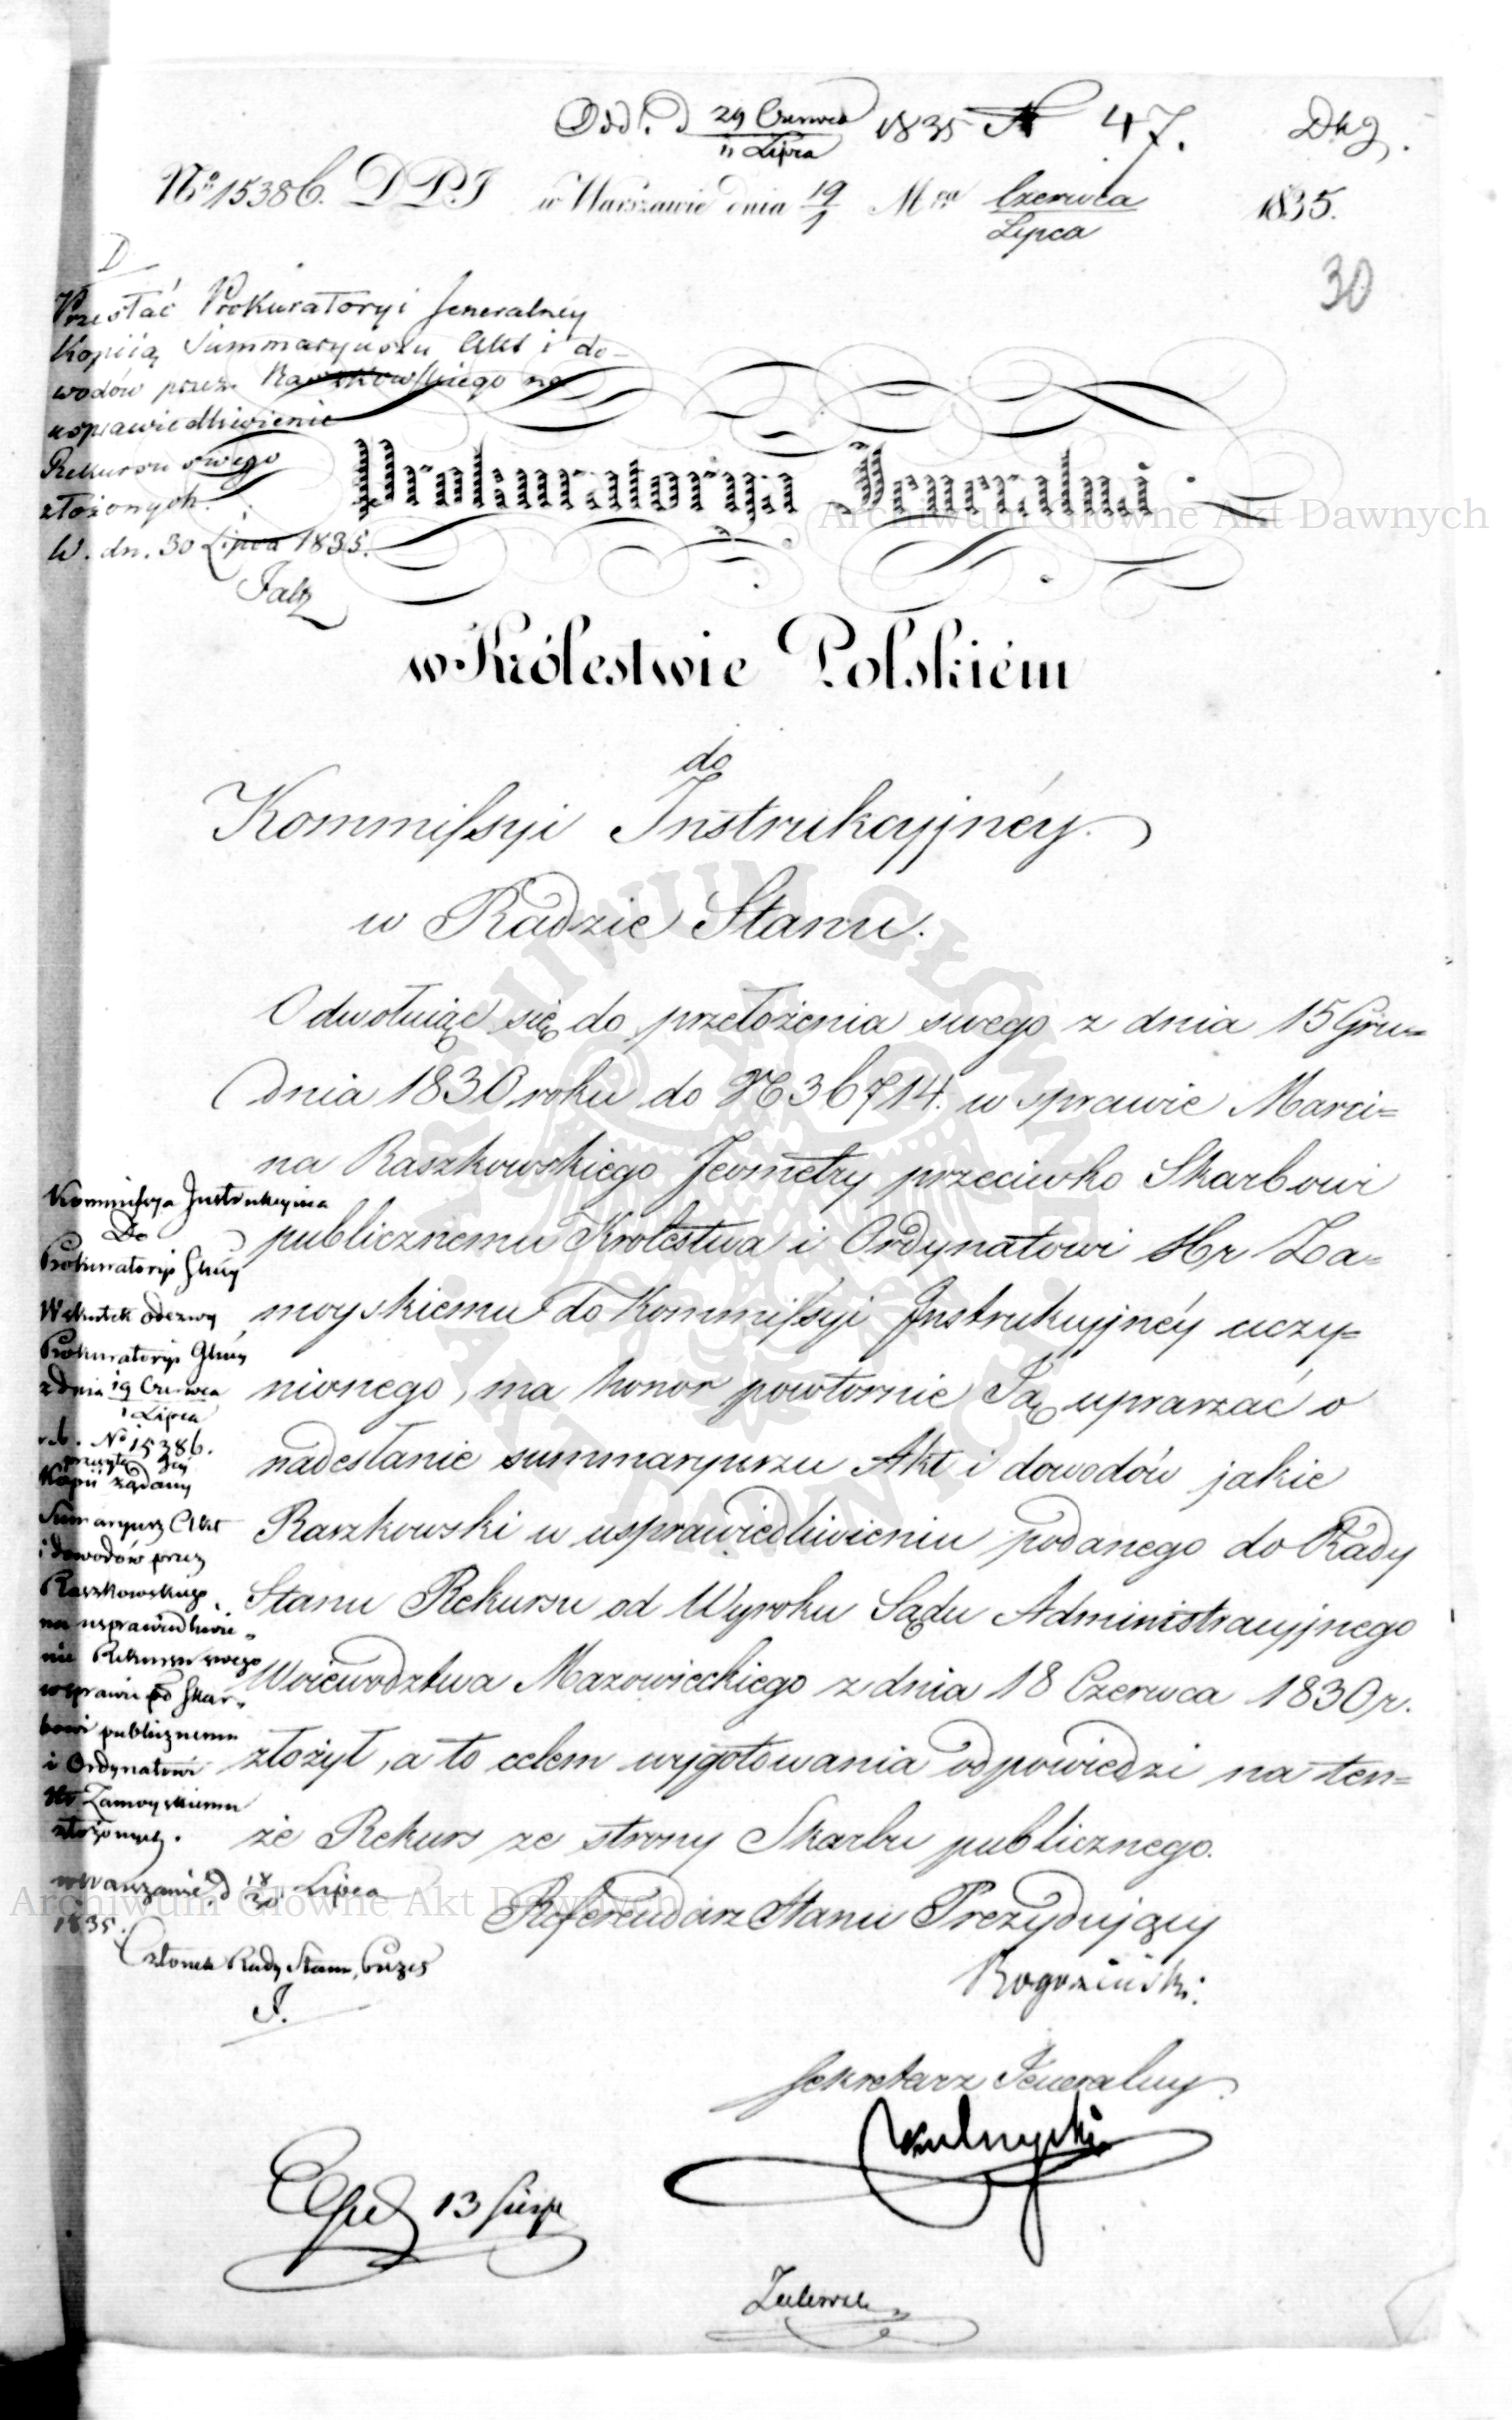 Odd. d 29 Czerwca / 11 Lipca 1835 N 47. Dkg.
No 15386. DP.I w Warszawie dnia 19/1 Mca Czerwca / Lipca 1835.
30
D
Przesłać Prokuratoryi Jeneralnéy
Kopiią Summaryuszu Akt i do-
wodów przez Raszkowskiego na
usprawiedliwienie
Rekursu swego
złożonych.
W. dn. 30 Lipca 1835.
Prokuratorya Jeneralna
w Królestwie Polskiém
do
Kommissyi Instrukcyjnéy.
w Radzie Stanu.
Odwołuiąc się do przełożenia swego z dnia 15 Gru=
dnia 1830 roku do N 36714. w sprawie Marci=
na Raszkowskiego Jeometry przeciwko Skarbowi
publicznemu Krolestwa i Ordynatowi Hr Za=
moyskiemu do Kommissyi Instrukcyjnéy uczy=
nionego, ma honor powtornie Ją upraszać o
nadesłanie summaryuszu Akt i dowodów jakie
Raszkowski w usprawiedliwieniu podanego do Rady
Stanu Rekursu od Wyroku Sądu Administracyjnego
Woiewodztwa Mazowieckiego z dnia 18 Czerwca 1830 r.
złożył, a to celem wygotowania odpowiedzi na ten=
że Rekurs ze strony Skarbu publicznego.
Referendarz Stanu Prezydujący
Rogoziński.
Sekretarz Jeneralny
Kommissya Instrukcyina
Do
Prokuratoryi Glnéy
W skutek odezwy
Prokuratoryi Glnéy
z dnia 19 Czerwca / 1 Lipca
r.b. No 15386.
przesyła Jéy
Kopii żądany
Sumaryusz Akt
i dowodów przez
Raszkowskiego
na usprawiedliwie-
nie Rekursu swego
w sprawie Skar-
bowi publicznemu
i Ordynatowi
Hr Zamoyskiemu
złożonych.
w Warszawie d 18/30 Lipca
1835.
Członek Rady Stanu, Prezes
13 Sierp
Archiwum Główne Akt Dawnych
ARCHIWUM GŁÓWNE AKT DAWNYCH
Archiwum Główne Akt Dawnych